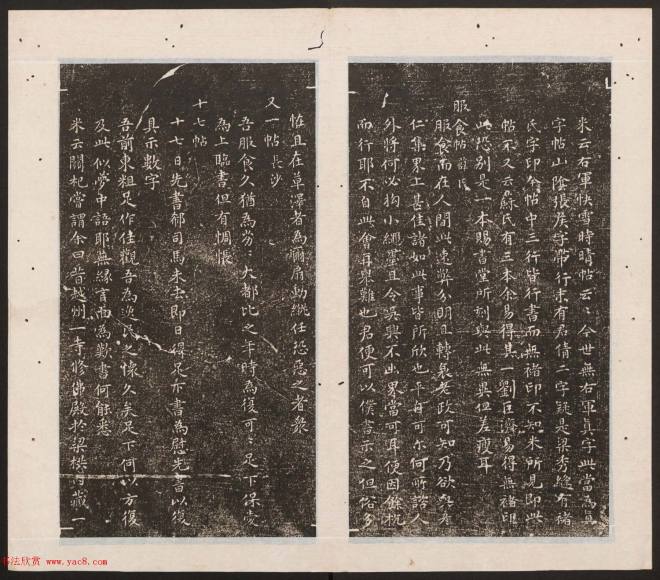 米云右軍快雪時晴帖云云今世無右軍真字此當為真
字帖山陰張侯字帶行末有君倩二字疑是梁秀縫有褚
氏字印今帖中三行皆行書而無褚印不知米所見即此
帖不又云蘇氏有三本余易得其一劉巨濟易得無褚印
此恐別是一本賜書堂所刻與此無異但差瘦耳
服食帖
服食而在人間此速弊分明且轉衰老政可知乃欲
仁集界上甚佳諸如此事皆所欣也平自可尔何所諮人
外將何必拘小繩墨且令吳興不出界當可耳使因餘杭
而行耶不自與會再舉難也君便可以僕書示之但俗多
怪且在草澤者為爾扇動縱任恐惡之者眾
又一帖長沙
吾服食久猶為劣劣大都比之年時為復可可足下保愛
為上臨書但有惆悵
十七帖
十七日先書郗司馬未去即日得足下書為慰先書以復
具示數字
吾前東粗足作佳觀吾為逸民之懷久矣足下何以方復
及此似夢中語耶無緣言面為歎書何能悉
米云關杞嘗謂余曰昔越州一寺修佛殿於梁棋內藏一
书法欣赏 www.yac8.com